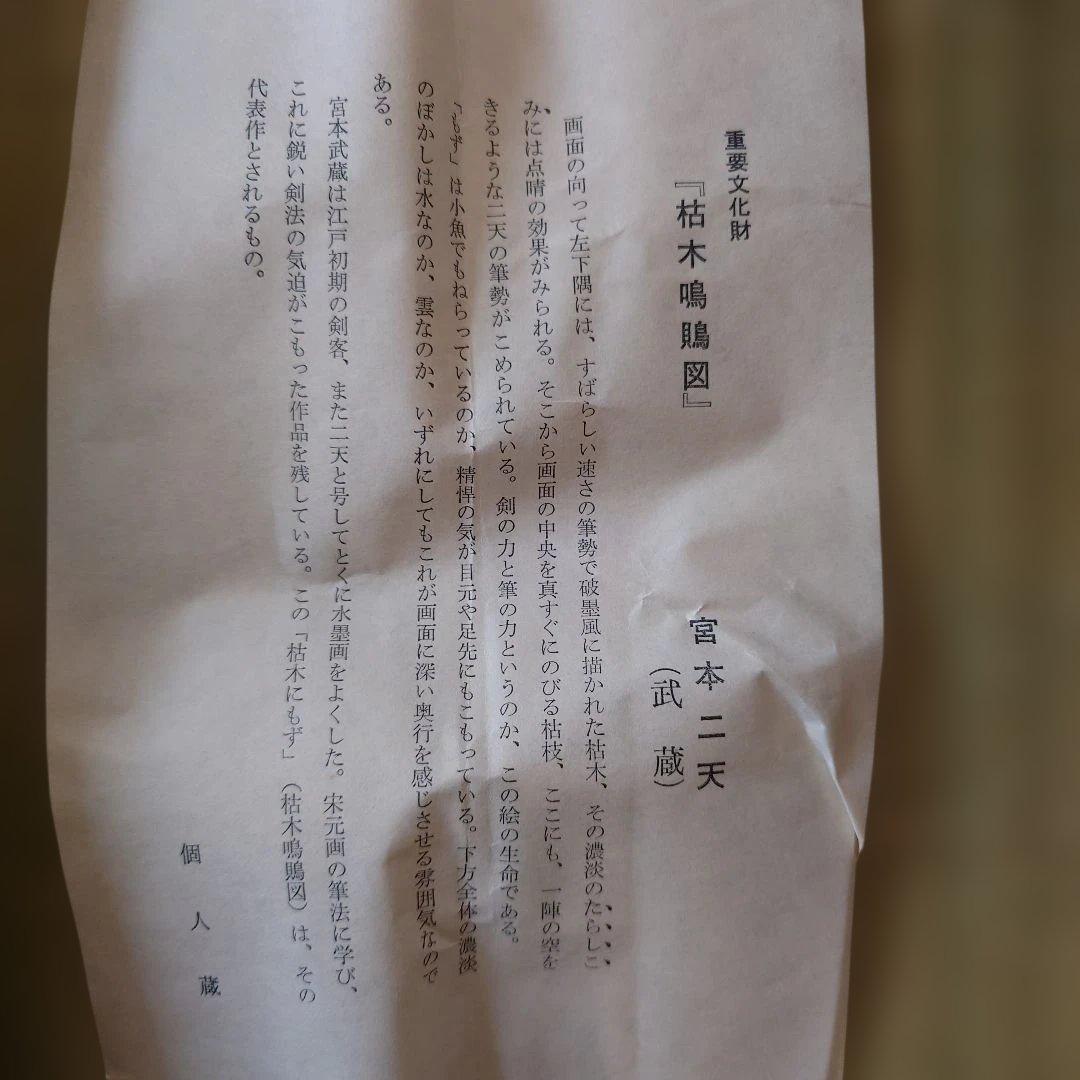 重要文化財
『枯木鳴鵙図』
宮本二天
（武蔵）
画面の向って左下隅には、すばらしい速さの筆勢で破墨風に描かれた枯木、その濃淡のたらしこ
みには点晴の効果がみられる。そこから画面の中央を真すぐにのびる枯枝、ここにも、一陣の空を
きるような二天の筆勢がこめられている。剣の力と筆の力というのか、この絵の生命である。
「もず」は小魚でもねらっているのか、精悍の気が目元や足先にもこもっている。下方全体の濃淡
のぼかしは水なのか、雲なのか、いずれにしてもこれが画面に深い奥行を感じさせる雰囲気なので
ある。
宮本武蔵は江戸初期の剣客、また二天と号してとくに水墨画をよくした。宋元画の筆法に学び、
これに鋭い剣法の気迫がこもった作品を残している。この「枯木にもず」（枯木鳴鵙図）は、その
代表作とされるもの。
個人蔵